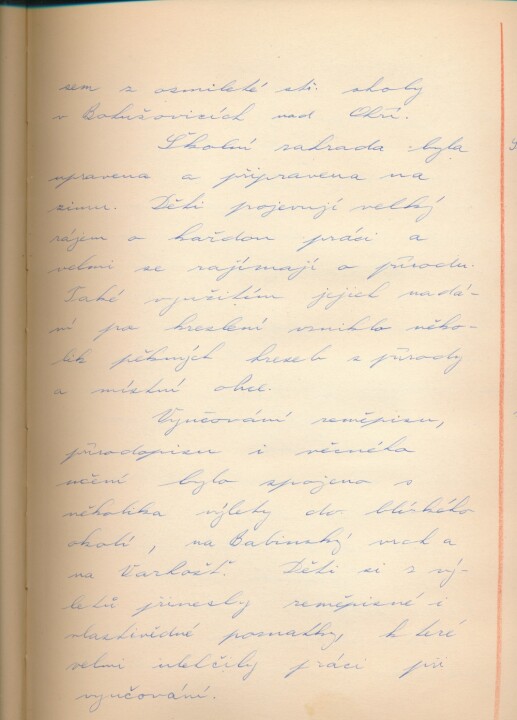 sem z osmileté stř. školy
v Bohušovicích nad Ohří.
Školní zahrada byla
upravena a připravena na
zimu. Děti projevují velký
zájem o každou práci a
velmi se zajímají o přírodu.
Také využitím jejich nadá-
ní po kreslení vzniklo něko-
lik pěkných kreseb z přírody
a místní obce.
Vyučování zeměpisu,
přírodopisu i věcného
učení bylo spojeno s
několika výlety do blízkého
okolí, na Babinský vrch a
na Varhošť. Děti si z vý-
letů přinesly zeměpisné i
vlastivědné poznatky, které
velmi ulehčily práci při
vyučování.